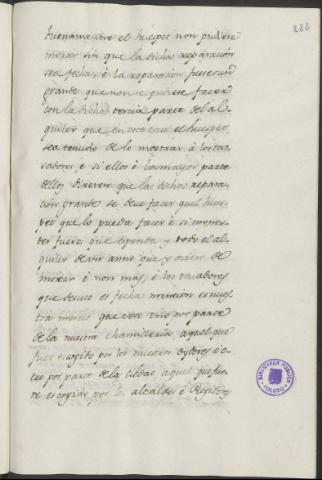 288
buenamente el huesped non pudiere
morar sin que la dicha reparación
sea fecha, é la reparación fuese tan
grande que non se pudiese facer
con la dicha tercia parte del al-
quiler que en este caso el huesped
sea tenudo de lo mostrar á los tasa-
dores, é si ellos ó la mayor parte
dellos dixeren que la dicha repara-
ción grande se deve facer quel hues-
ped que lo pueda facer é si menes-
ter fuere, que espenda y todo el al-
quiler de un anno que y oviere de
morar é non más, é los tasadores
que desuso es fecha mención es nues-
tra merced que sea uno por parte
de la nuestra chancillería aquel que
fuer escogido por los nuestros oydores é o-
tro por parte de la cibdad, aquel que fue-
re escogido por los alcaldes é Regidores
BIBLIOTECA PÚBLICA
TOLEDO